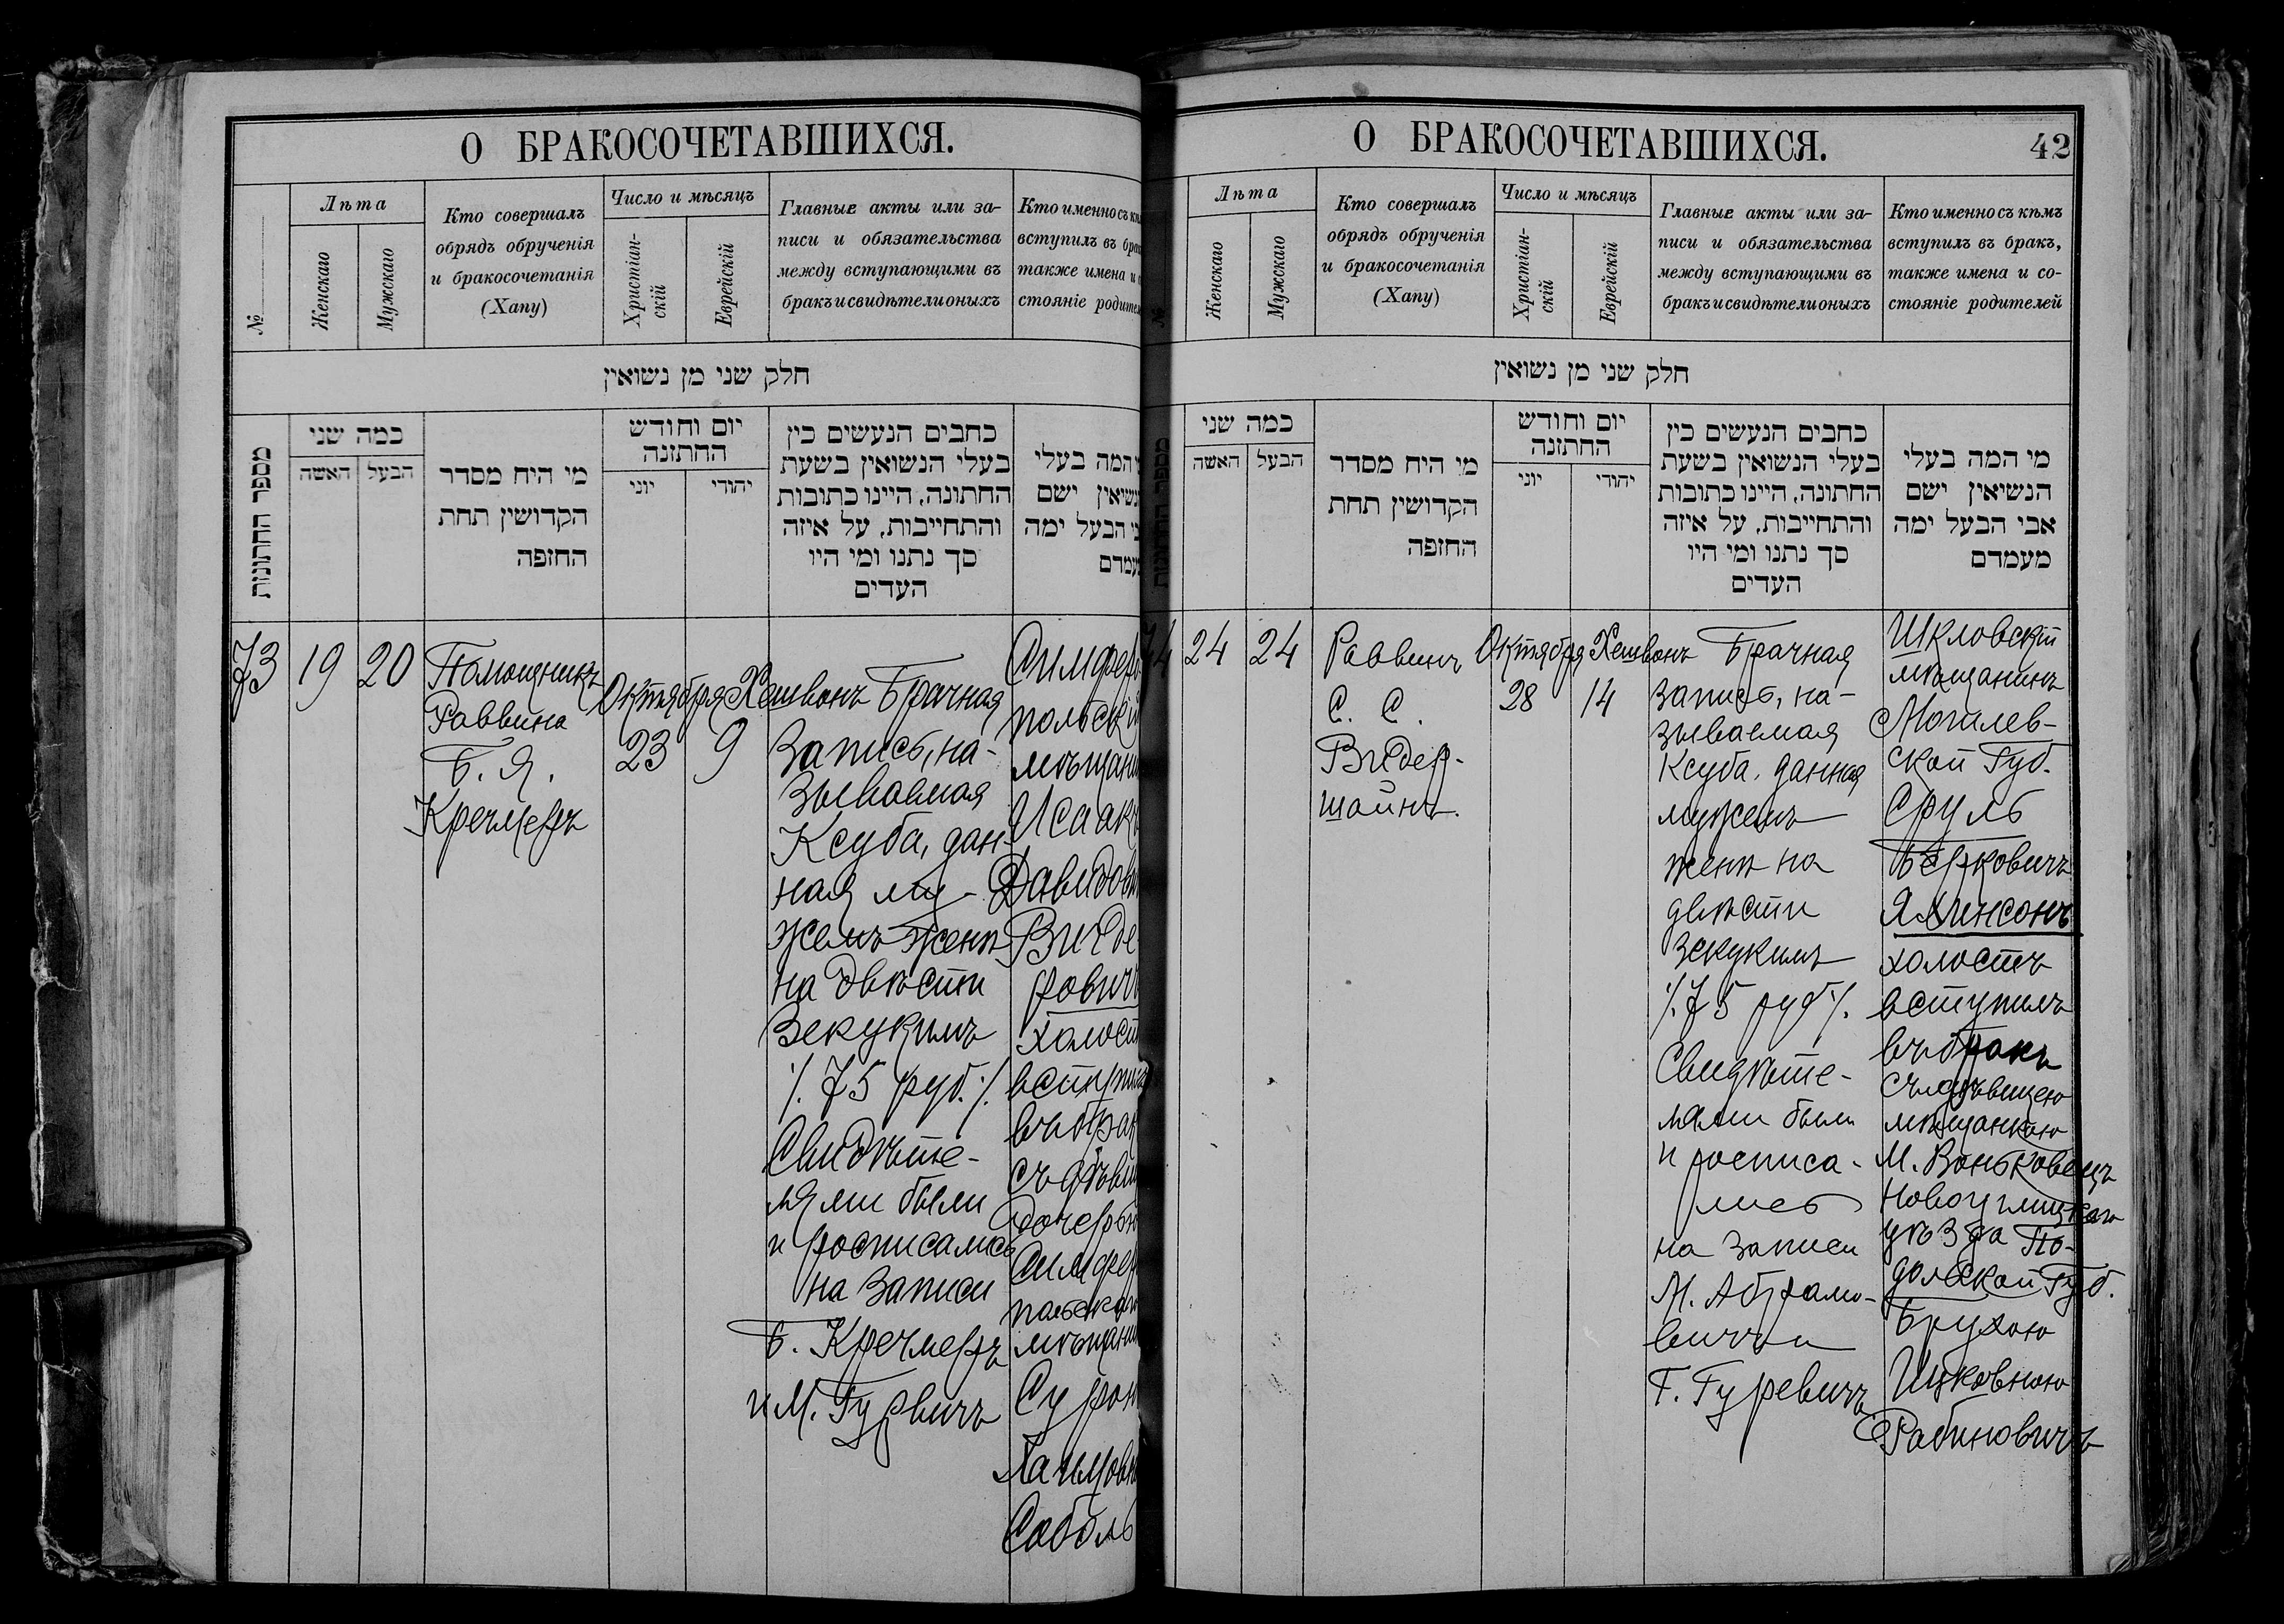 О БРАКОСОЧЕТАВШИХСЯ.
№
Лѣта
Женскаго
Мужскаго
Кто совершалъ
обрядъ обрученія
и бракосочетанія
(Хапу)
Число и мѣсяцъ
Христіан-
скій
Еврейскій
Главные акты или за-
писи и обязательства
между вступающими въ
бракъ и свидѣтели оныхъ
Кто именно съ
вступилъ въ
также имена и
стояніе
חלק שני מן נשואין
מספר החתונות
כמה שני
האשה
הבעל
מי היח מסדר
הקדושין תחת
החופה
יום וחודש
החתונה
יוני
יהודי
כתבים הנעשים כין
בעלי הנשואין בשעת
החתונה, היינו כתובות
והתחייבות, על איזה
סך נתנו ומי היו
העדים
המה בעלי
ישם
הבעל ימה
73
19
20
Помощникъ
Раввина
Б. Я.
Кречмеръ
Октября
23
Хешвонъ
9
Брачная
запись, на-
зываемая
Ксуба, дан-
ная му-
жемъ женѣ
на двѣсти
Зекукимъ
/. 75 руб. /.
Свидѣте-
лями были
и росписались
на записи
Б. Кречмеръ
и М. Гурвичъ
Симферо
польскій
мѣщани
Исаакъ
Давидови
Видер
ровичъ
холост
вступил
въ брак
съ дѣви
дочерью
Симфер
польскаго
мѣщани
Сурою
Хаимов
Соболь
О БРАКОСОЧЕТАВШИХСЯ.
42
Лѣта
Женскаго
Мужскаго
Кто совершалъ
обрядъ обрученія
и бракосочетанія
(Хапу)
Число и мѣсяцъ
Христіан-
скій
Еврейскій
Главные акты или за-
писи и обязательства
между вступающими въ
бракъ и свидѣтели оныхъ
Кто именно съ кѣмъ
вступилъ въ бракъ,
также имена и со-
стояніе родителей
חלק שני מן נשואין
כמה שני
האשה
הבעל
מי היח מסדר
הקדושין תחת
החופה
יום וחודש
החתונה
יוני
יהודי
כתבים הנעשים כין
בעלי הנשואין בשעת
החתונה, היינו כתובות
והתחייבות, על איזה
סך נתנו ומי היו
העדים
מי המה בעלי
הנשיאין ישם
אבי הבעל ימה
מעמדם
24
24
Раввинъ
С. С.
Видер-
шайнъ.
Октября
28
Хешвонъ
14
Брачная
запись, на-
зываемая
Ксуба, данная
мужемъ
женѣ на
двѣсти
Зекукимъ
/. 75 руб /.
Свидѣте-
лями были
и росписа-
лись
на записи
М. Абрамо-
вичъ и
Г. Гуревичъ
Шкловскій
мѣщанинъ
Могилев-
ской Губ.
Сруль
Берковичъ
Яхинсонъ
холостъ
вступилъ
въ бракъ
съ дѣвицею
мѣщанкою
М. Воньковецъ
Новоушицкаго
уѣзда По-
дольской Губ.
Брухою
Ицковною
Рабиновичъ